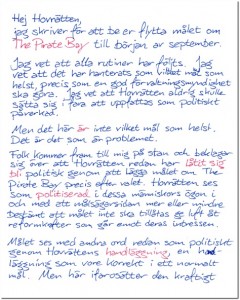 Hej Hovrätten,
jag skriver för att be er flytta målet om
The Pirate Bay till början av september.
Jag vet att alla rutiner har följts. Jag
vet att det har hanterats som vilket mål som
helst, precis som en god förvaltningsmyndighet
ska göra. Jag vet att Hovrätten aldrig skulle
sätta sig i para att uppfattas som politiskt
påverkad.
Men det här är inte vilket mål som helst.
Det är det som är problemet.
Folk kommer fram till mig på stan och beklagar
sig över att Hovrätten redan har låtit sig
bli politisk genom att lägga målet om The
Pirate Bay precis efter valet. Hovrätten ses
som politiserad i dessa människors ögon i
och med att målsägarsidan mer eller mindre
bestämt att målet inte ska tillåtas ge luft åt
reformkrafter som går emot deras intressen.
Målet ses med andra ord redan som politiskt
genom Hovrättens handläggning, en hand-
läggning som vore korrekt i ett normalt
mål. Men här ifarosätter den kraftigt